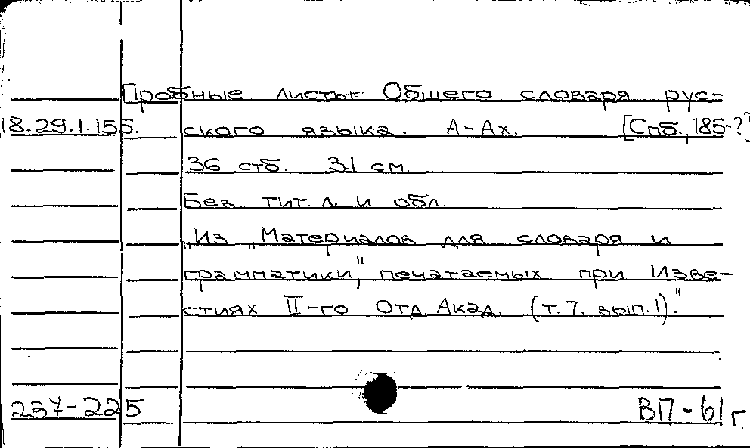 Пробные листы Общего словаря рус-
18.29.1.155. ского языка. А-Ах. [Спб., 185-?]
36 стб. 31 см.
Без тит. л. и обл.
„Из „Материалов для словаря и
грамматики," печатаемых при Изве-
стиях II-го Отд. Акад. (т. 7. вып. 1)."
237-225 ВП-61г